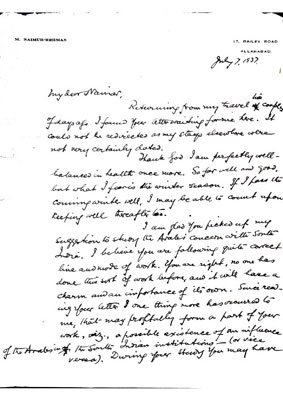 M. NAIMUR-REHMAN
17, BAILEY ROAD
ALLAHABAD.
July 7, 1937.
My dear Nainar,
Returning from my travel a couple
of days ago I found your letter waiting for me here. It
could not be redirected as my stays elsewhere were
not very certainly dated.
Thank God I am perfectly well-
balanced in health once more. So far well and good,
but what I fear is the winter season. If I pass the
coming winter well, I may be able to count upon
keeping well thereafter too.
I am glad you picked up my
suggestion to study the Arabs' concern with South
India. I believe you are following quite correct
line and mode of work. You are right, no one has
done this sort of work before, and it will have a
charm and an importance of its own. Since read-
ing your letter one thing more has occurred to
me, that may profitably form a part of your
work, viz., a possible existence of an influence
of the Arabs in the South Indian institutions — (or vice
versa). During your study you may have